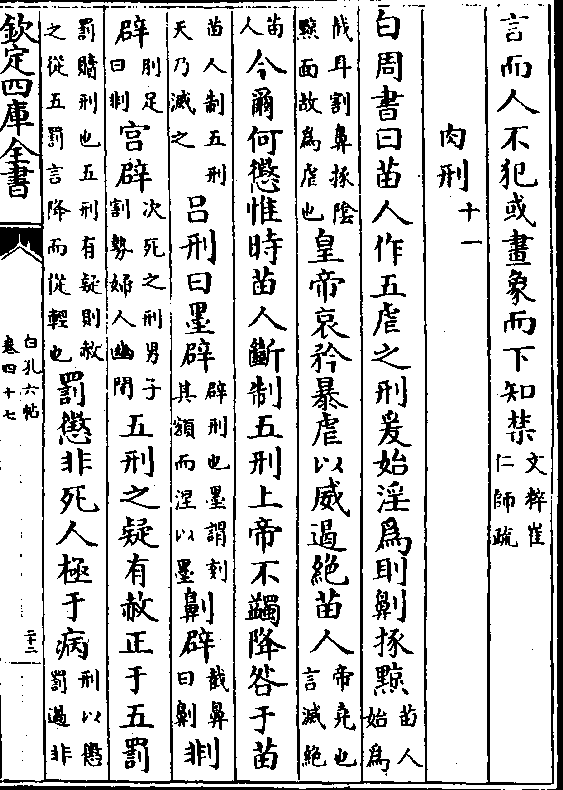 言而人不犯或畫象而下知禁文粹崔仁師疏
肉刑十一
白周書曰苗人作五虐之刑爰始淫爲刵劓椓黥苗人始爲
截耳割鼻椓陰黥面故爲虐也皇帝哀矜暴虐以威遏絶苗人帝堯也言滅絶
苗人今爾何懲惟時苗人斷制五刑上帝不蠲降咎于苗
苗人制五刑天乃滅之吕刑曰墨辟辟刑也墨謂刻其額而涅以墨劓辟截鼻曰劓剕
辟刖足曰剕宫辟次死之刑男子割勢婦人幽閉五刑之疑有赦正于五罰
罰贖刑也五刑有疑則赦之從五罰言降而從輕也罰懲非死人極于病刑以懲罰過非
欽定四庫全書
白孔六帖
卷四十七
二十二